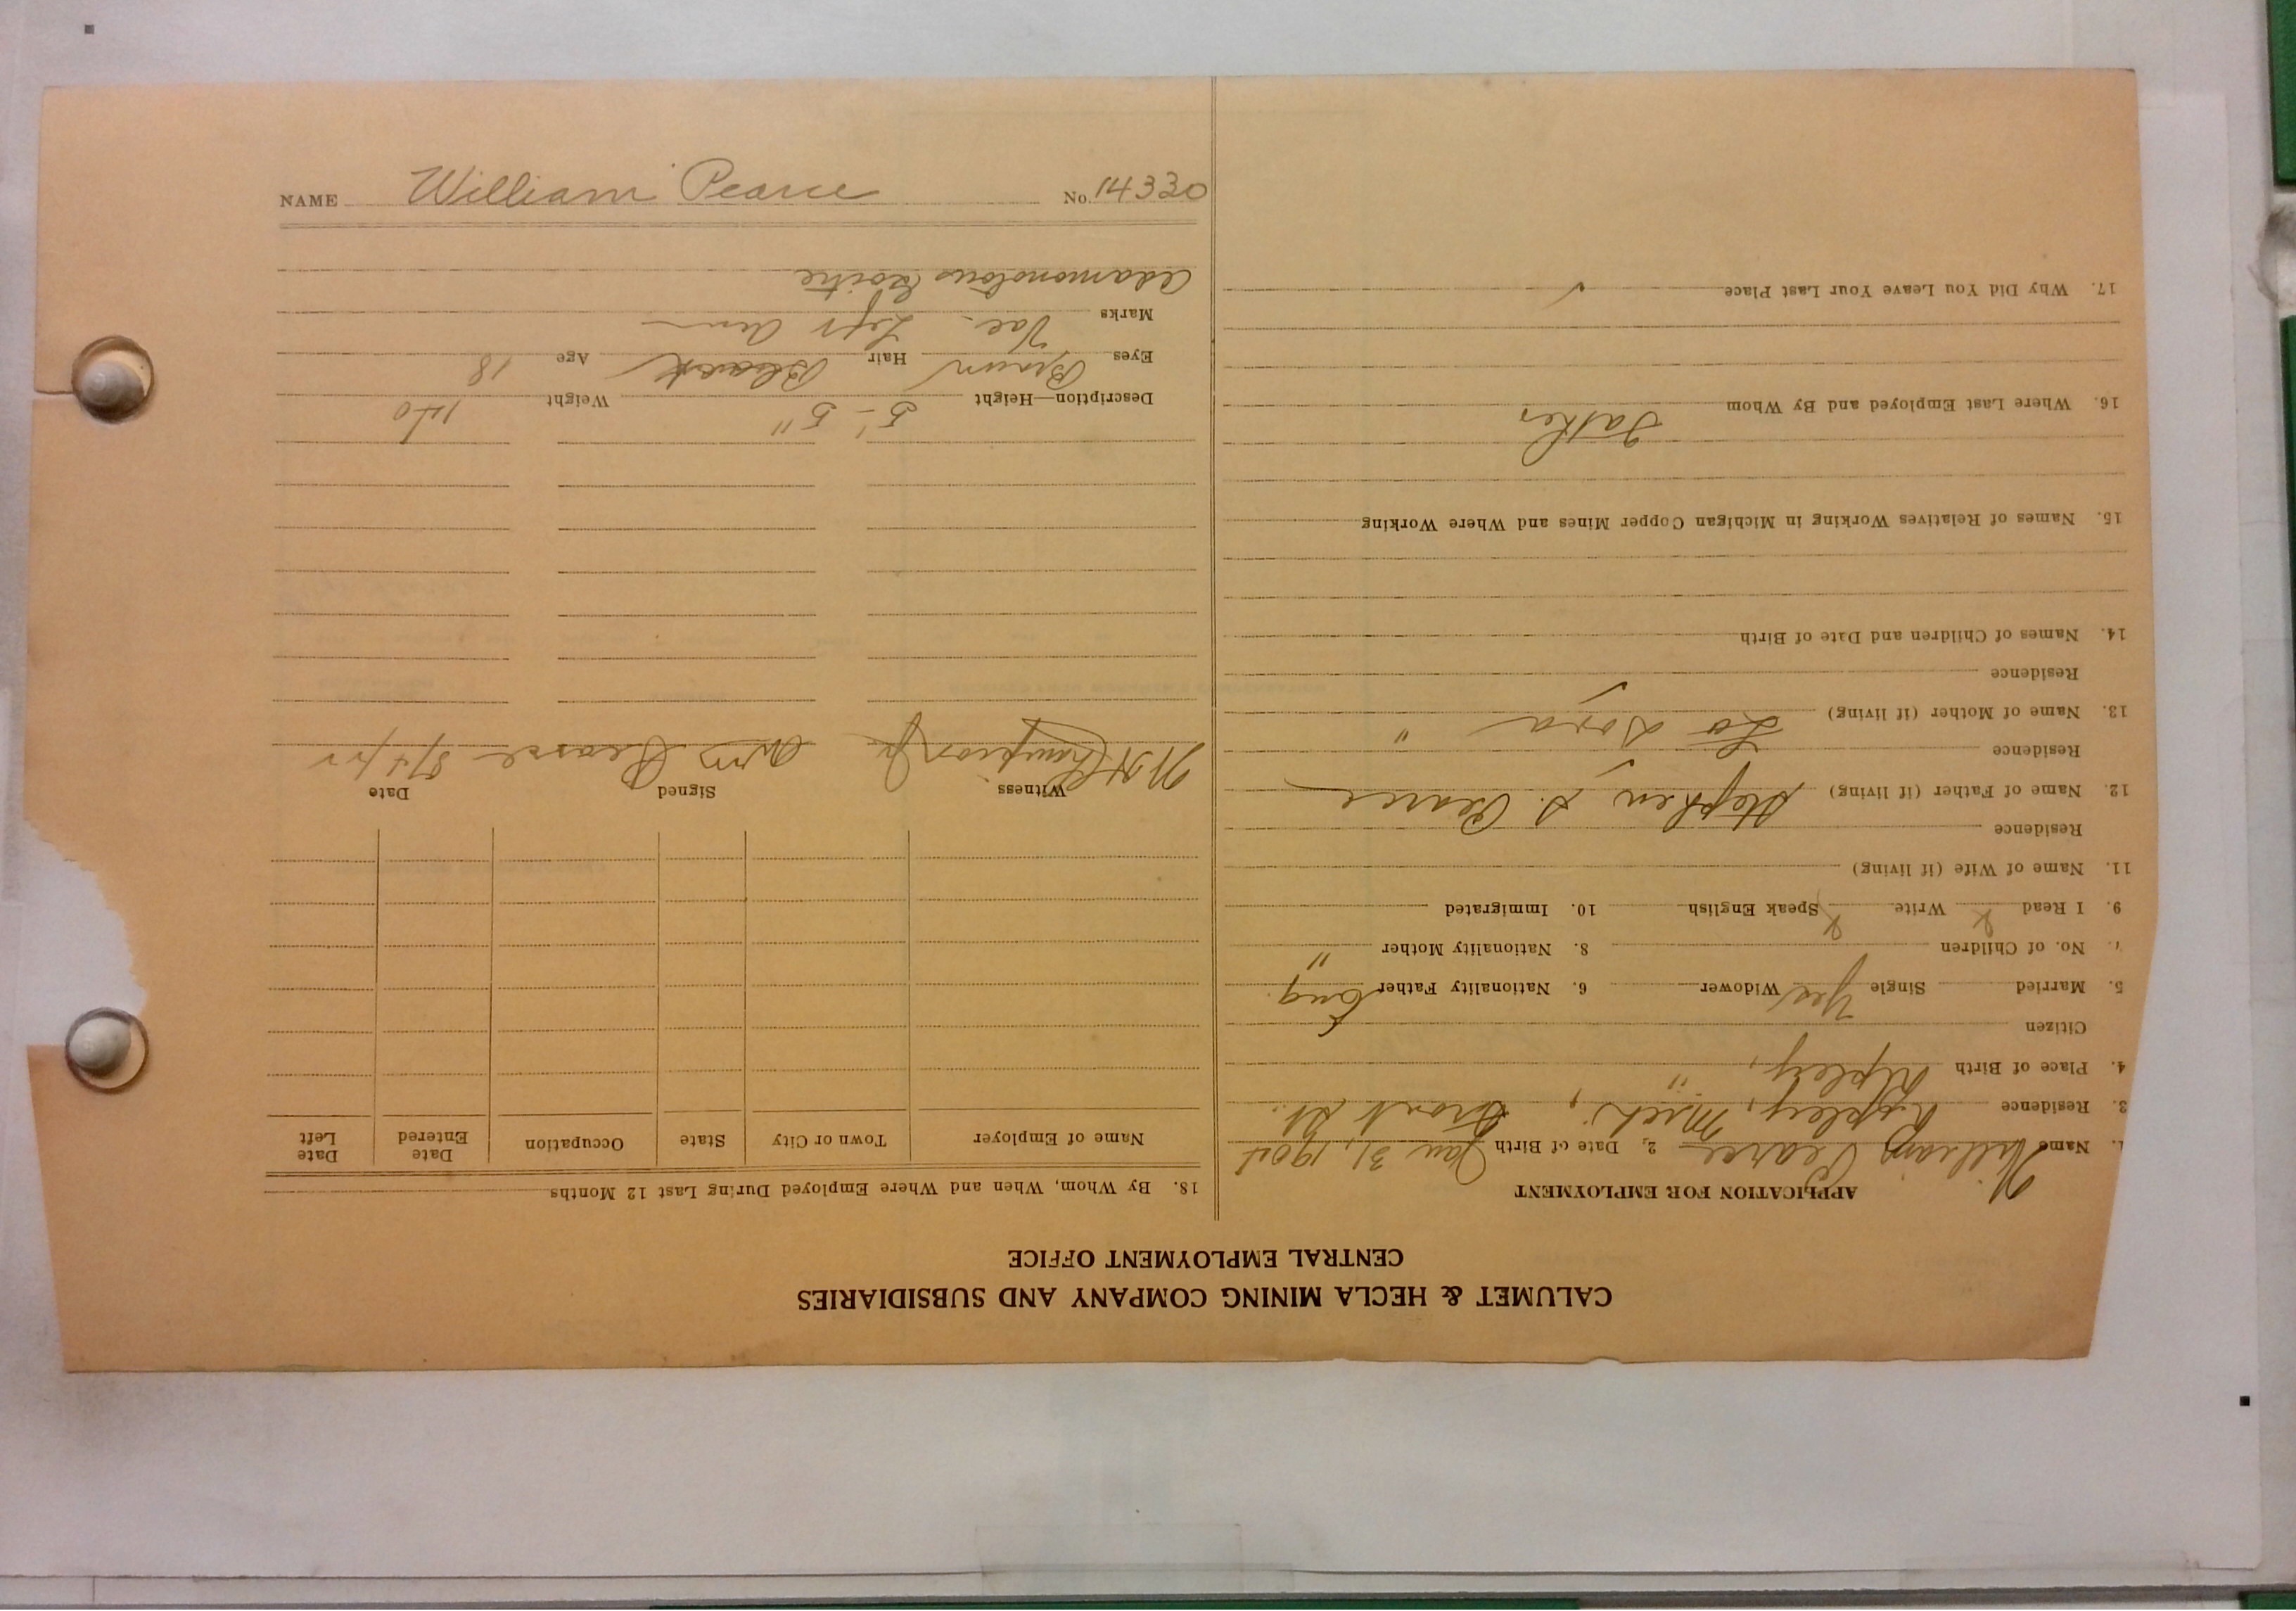 CALUMET & HECLA MINING COMPANY AND SUBSIDIARIES
CENTRAL EMPLOYMENT OFFICE
APPLICATION FOR EMPLOYMENT
1. Name William Pearce 2. Date of Birth Jan 31, 1904
3. Residence Ripley, Mich, Front St.
4. Place of Birth Ripley, "
Citizen
5. Married Single Yes Widower 6. Nationality Father Eng
7. No. of Children 8. Nationality Mother "
9. I Read X Write X Speak English 10. Immigrated
11. Name of Wife (if living)
Residence
12. Name of Father (if living) Stephen S. Pearce
Residence
13. Name of Mother (if living) "
Residence
14. Names of Children and Date of Birth
15. Names of Relatives Working in Michigan Copper Mines and Where Working
16. Where Last Employed and By Whom Father
17. Why Did You Leave Your Last Place ✓
18. By Whom, When and Where Employed During Last 12 Months
Name of Employer Town or City State Occupation Date Entered Date Left
Witness Signed Date
Champion Jr Wm Pearce
Description—Height 5'-5" Weight
Eyes Brown Hair Black Age 18
Marks Vac. Left Arm
Goitre
NAME William Pearce No. 14330